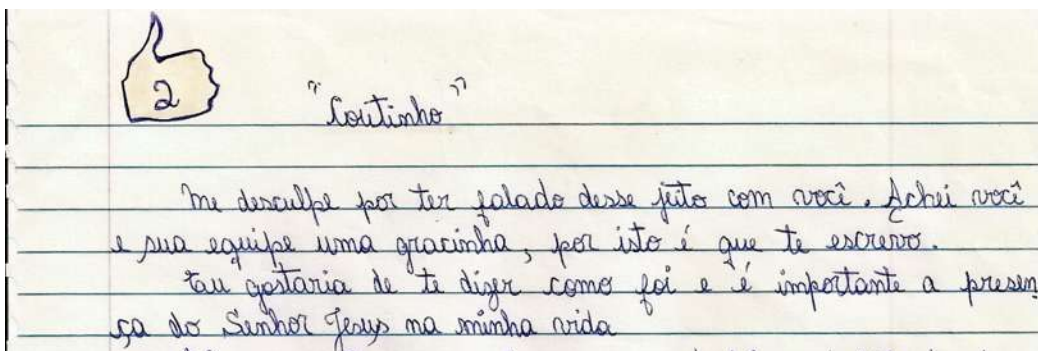 2
"Coutinho"
Me desculpe por ter falado desse jeito com você. Achei você
e sua equipe uma gracinha, por isto é que te escrevo.
Eu gostaria de te dizer como foi e é importante a presen
ça do Senhor Jesus na minha vida